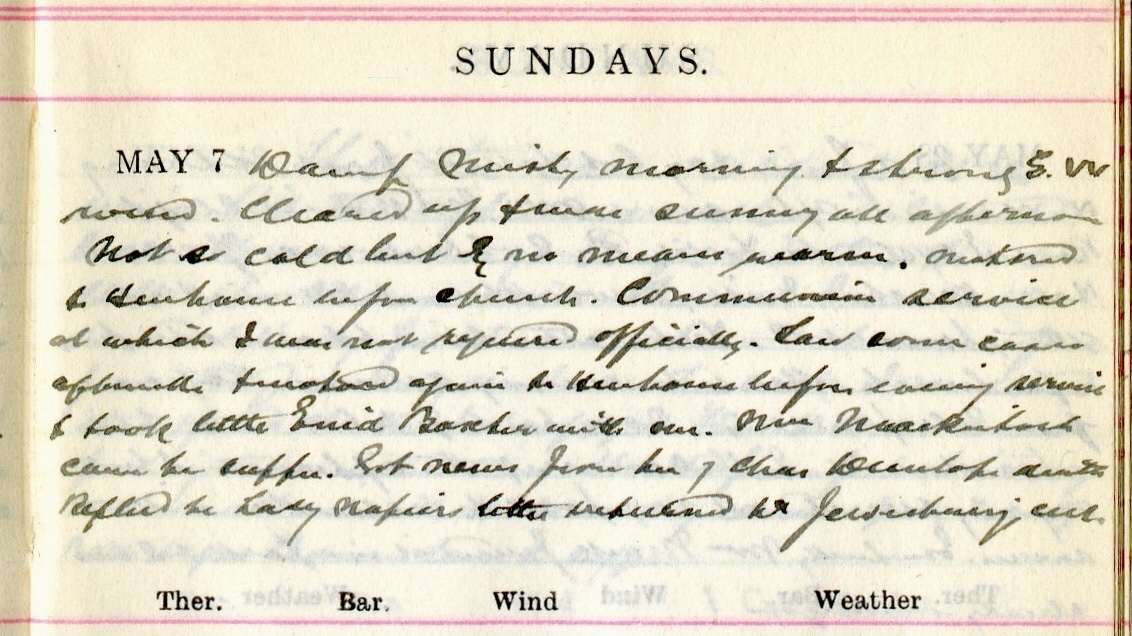 SUNDAYS.
MAY 7 Damp Misty morning & strong E. W
wind. Cleared up & was sunny all afternoon
Not so cold but by no means warm. Motored
to Henhouse before church. Communion service
at which I was not required officially. Saw some cases
afterwards & motored again to Henhouse before evening service
& took little Enid Baxter with me. Mrs Mackintosh
came to supper. Got news from her of Chas Dunlops death
Replied to Lady Napiers letter returned
Ther. Bar. Wind Weather